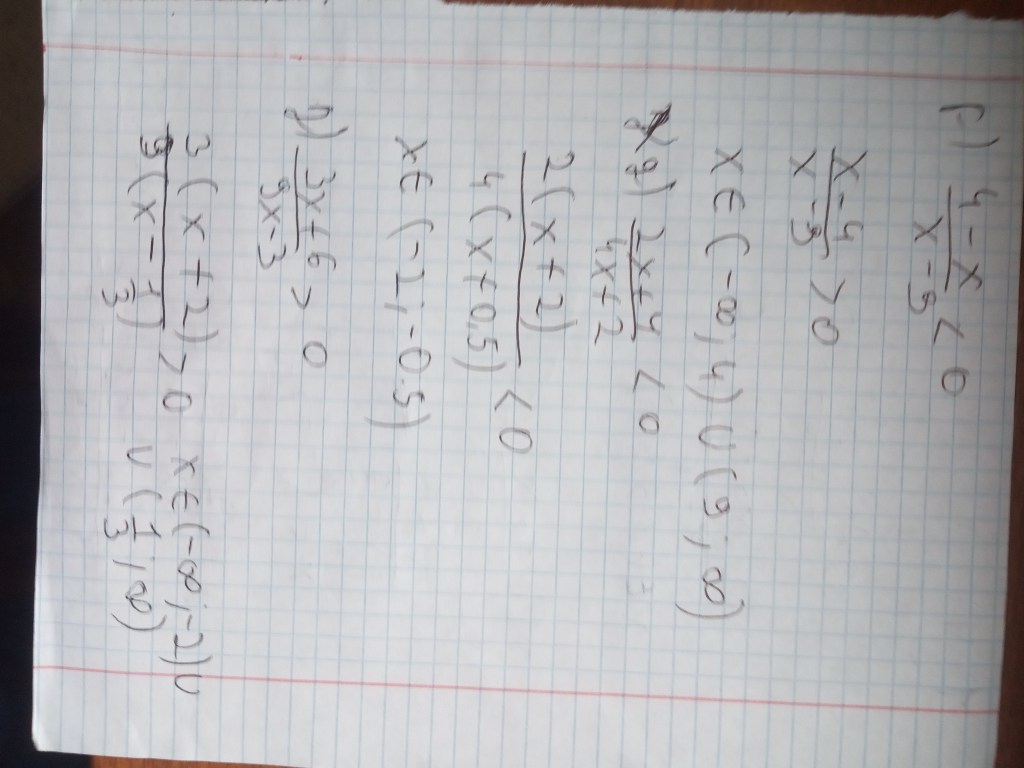 г) (4-x)/(x-9) < 0
(x-4)/(x-9) > 0
x ∈ (-∞; 4) ∪ (9; ∞)
g) (2x+4)/(4x+2) < 0
2(x+2)/4(x+0,5) < 0
x ∈ (-2; -0.5)
(3x+6)/(9x-3) > 0
3(x+2)/9(x-1/3) > 0 x ∈ (-∞; -2) ∪
∪ (1/3; ∞)